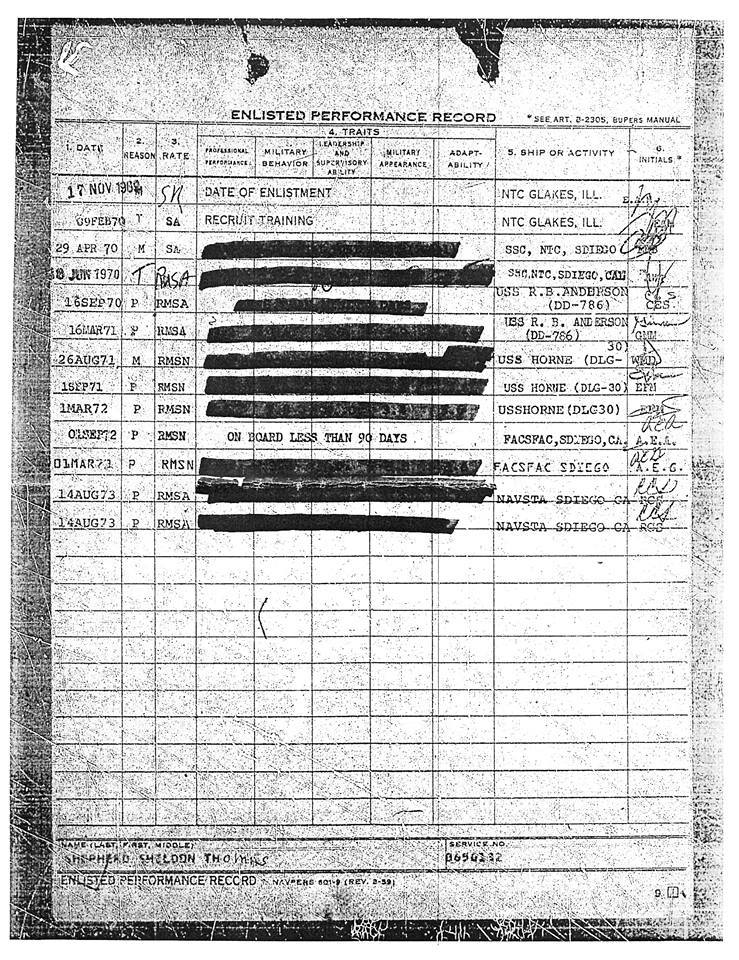 ENLISTED PERFORMANCE RECORD
* SEE ART. B-2305, BUPERS MANUAL
1. DATE 2. REASON 3. RATE 4. TRAITS 5. SHIP OR ACTIVITY 6. INITIALS *
PROFESSIONAL PERFORMANCE MILITARY BEHAVIOR LEADERSHIP AND SUPERVISORY ABILITY MILITARY APPEARANCE ADAPT-ABILITY
17 NOV SR DATE OF ENLISTMENT NTC GLAKES, ILL.
09FEB70 T SA RECRUIT TRAINING NTC GLAKES, ILL.
29 APR 70 M SA SSC, NTC, SDIEGO
JUN 1970 T RMSA SSC,NTC,SDIEGO,CAL
16SEP70 P RMSA USS R.B.ANDERSON (DD-786) CES
16MAR71 P RMSA USS R. B. ANDERSON (DD-786) GMM
26AUG71 M RMSN USS HORNE (DLG-30) WMD
1SEP71 P RMSN USS HORNE (DLG-30) EFM
1MAR72 P RMSN USSHORNE(DLG30)
01SEP72 P RMSN ON BOARD LESS THAN 90 DAYS FACSFAC,SDIEGO,CA. A.E.A.
01MAR73 P RMSN FACSFAC SDIEGO A.E.G.
14AUG73 P RMSA NAVSTA SDIEGO CA RCS
14AUG73 P RMSA NAVSTA SDIEGO CA RCS
NAME (LAST, FIRST, MIDDLE) SERVICE NO.
SHEPHERD SHELDON THOMAS
ENLISTED PERFORMANCE RECORD - NAVPERS 601-9 (REV. 2-59)
9